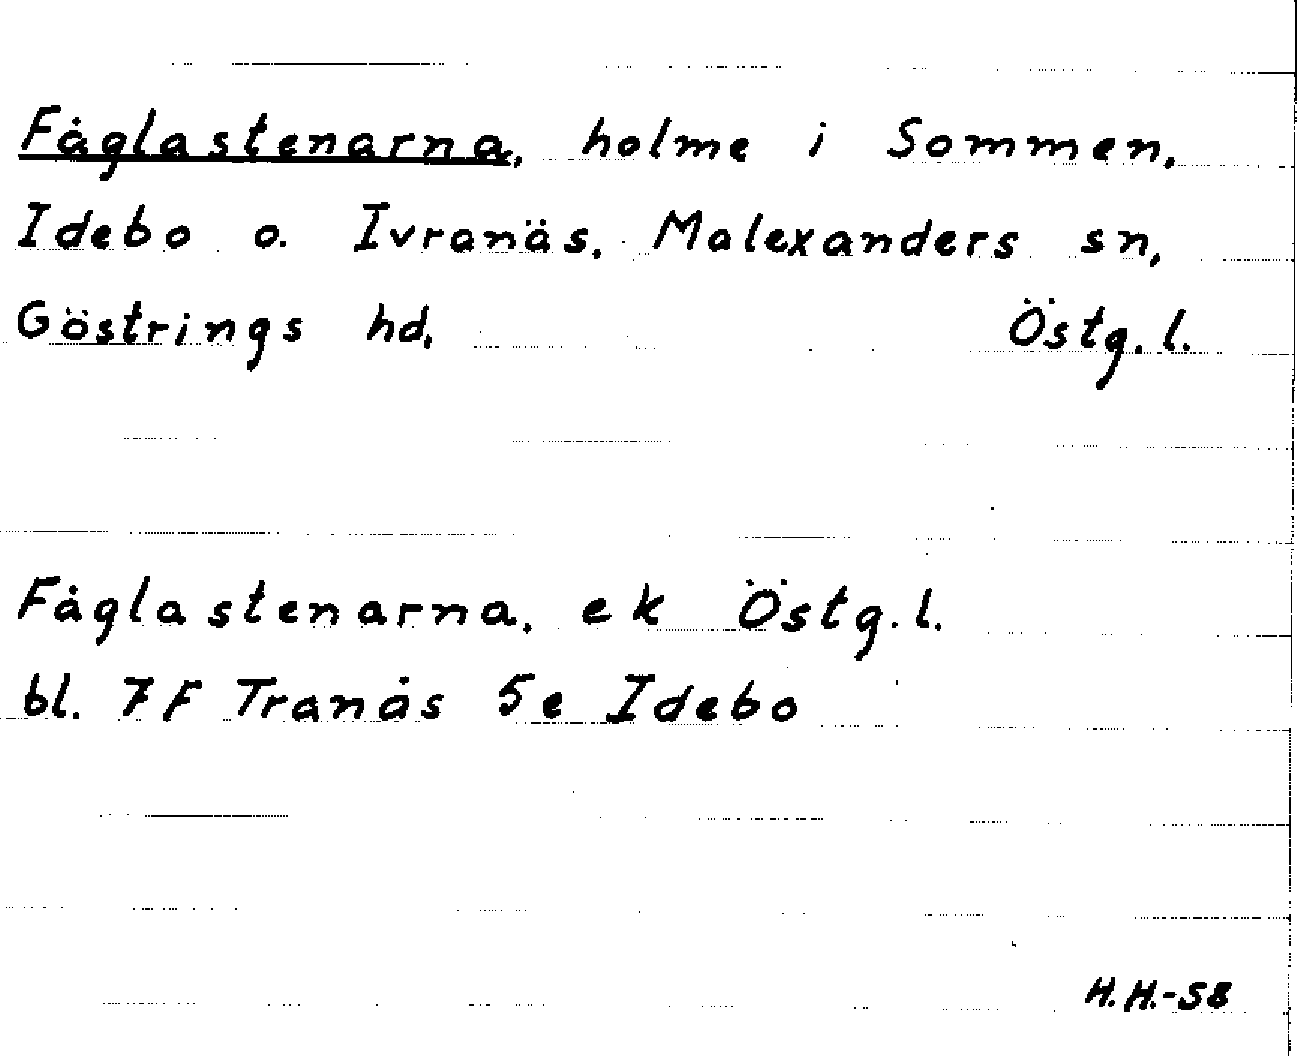 Fåglastenarna, holme i Sommen,
Idebo o. Ivranäs, Malexanders sn,
Göstrings hd, Östg. l.
Fåglastenarna, ek Östg. l.
bl. 7F Tranås 5e Idebo
H.H.-58